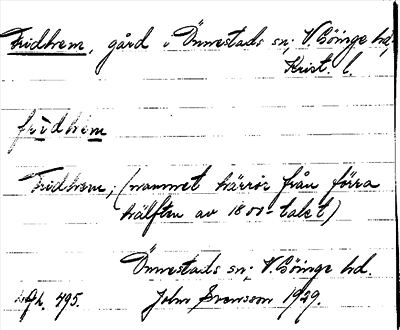 Fridhem, gård i Önnestads sn; V. Göinge hd,
Krist. l.
fridhem
Fridhem; (namnet härrör från förra
hälften av 1800-talet)
Önnestads sn; V. Göinge hd.
495. John Svensson 1929.